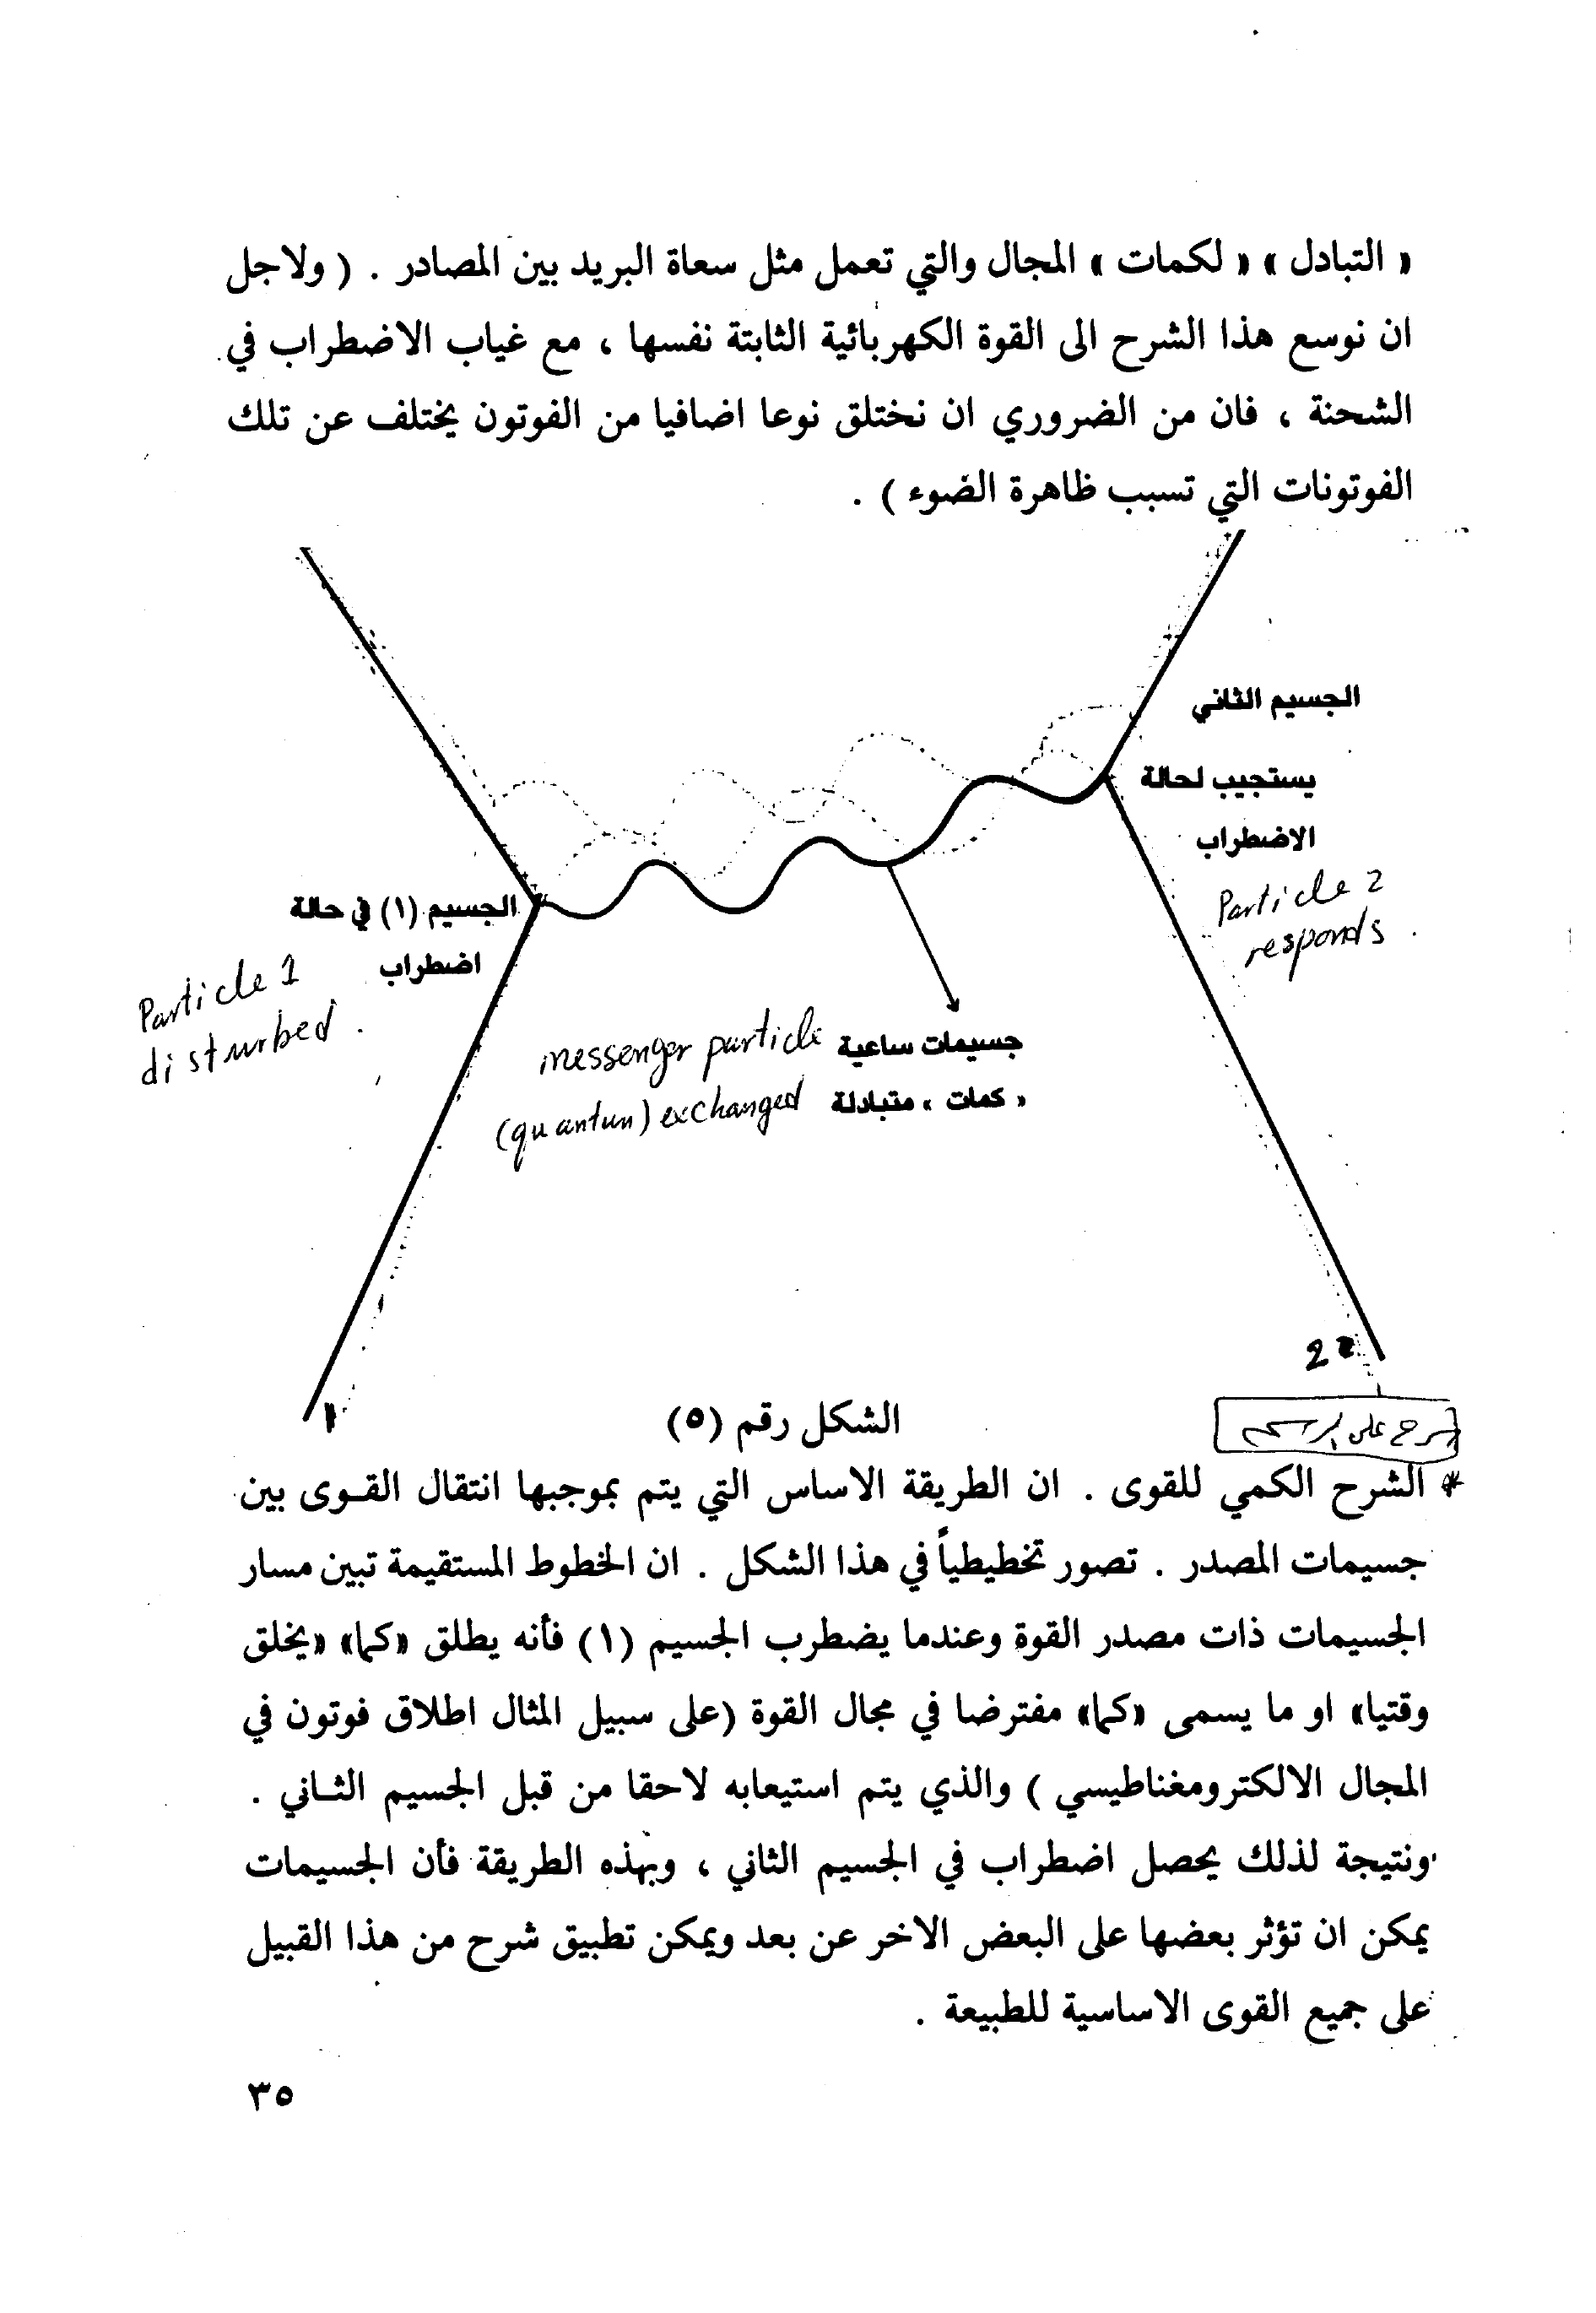 « التبادل » « لكمات » المجال والتي تعمل مثل سعاة البريد بين المصادر . ( ولاجل
ان نوسع هذا الشرح الى القوة الكهربائية الثابتة نفسها ، مع غياب الاضطراب في
الشحنة ، فان من الضروري ان نختلق نوعا اضافيا من الفوتون يختلف عن تلك
الفوتونات التي تسبب ظاهرة الضوء ) .
الجسيم الثاني
يستجيب لحالة
الاضطراب
Particle 2
responds
الجسيم (١) في حالة
اضطراب
Particle 1
disturbed
جسيمات ساعية
messenger particle
« كمات » متبادلة
(quantum) exchanged
2
1
الشكل رقم (٥)
شرح على الرسم
* الشرح الكمي للقوى . ان الطريقة الاساس التي يتم بموجبها انتقال القـوى بين
جسيمات المصدر . تصور تخطيطياً في هذا الشكل . ان الخطوط المستقيمة تبين مسار
الجسيمات ذات مصدر القوة وعندما يضطرب الجسيم (١) فأنه يطلق «كما» «يخلق
وقتيا» او ما يسمى «كما» مفترضا في مجال القوة (على سبيل المثال اطلاق فوتون في
المجال الالكترومغناطيسي ) والذي يتم استيعابه لاحقا من قبل الجسيم الثـاني .
ونتيجة لذلك يحصل اضطراب في الجسيم الثاني ، وبهذه الطريقة فأن الجسيمات
يمكن ان تؤثر بعضها على البعض الاخر عن بعد ويمكن تطبيق شرح من هذا القبيل
على جميع القوى الاساسية للطبيعة .
٣٥